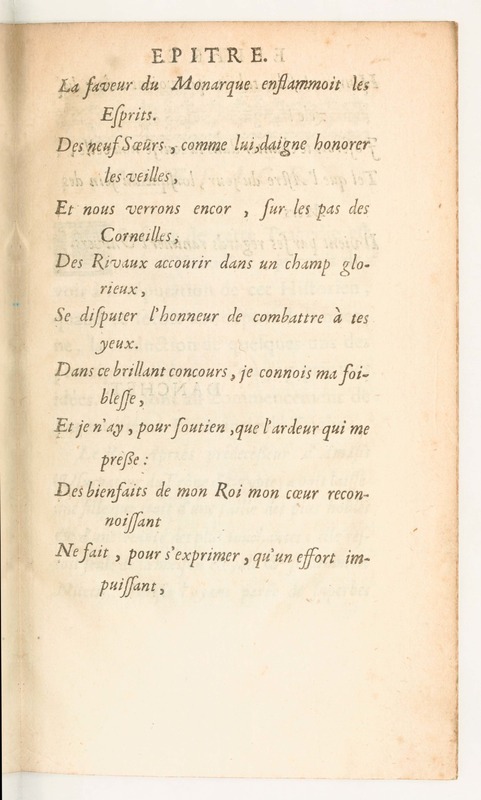 EPITRE.
La faveur du Monarque enflammoit les
Eſprits.
Des neuf Sœûrs, comme lui, daigne honorer
les veilles,
Et nous verrons encor, ſur les pas des
Corneilles,
Des Rivaux accourir dans un champ glo-
rieux,
Se diſputer l'honneur de combattre à tes
yeux.
Dans ce brillant concours, je connois ma foi-
bleſſe,
Et je n'ay, pour ſoutien, que l'ardeur qui me
preſſe:
Des bienfaits de mon Roi mon cœur recon-
noiſſant
Ne fait, pour s'exprimer, qu'un effort im-
puiſſant,